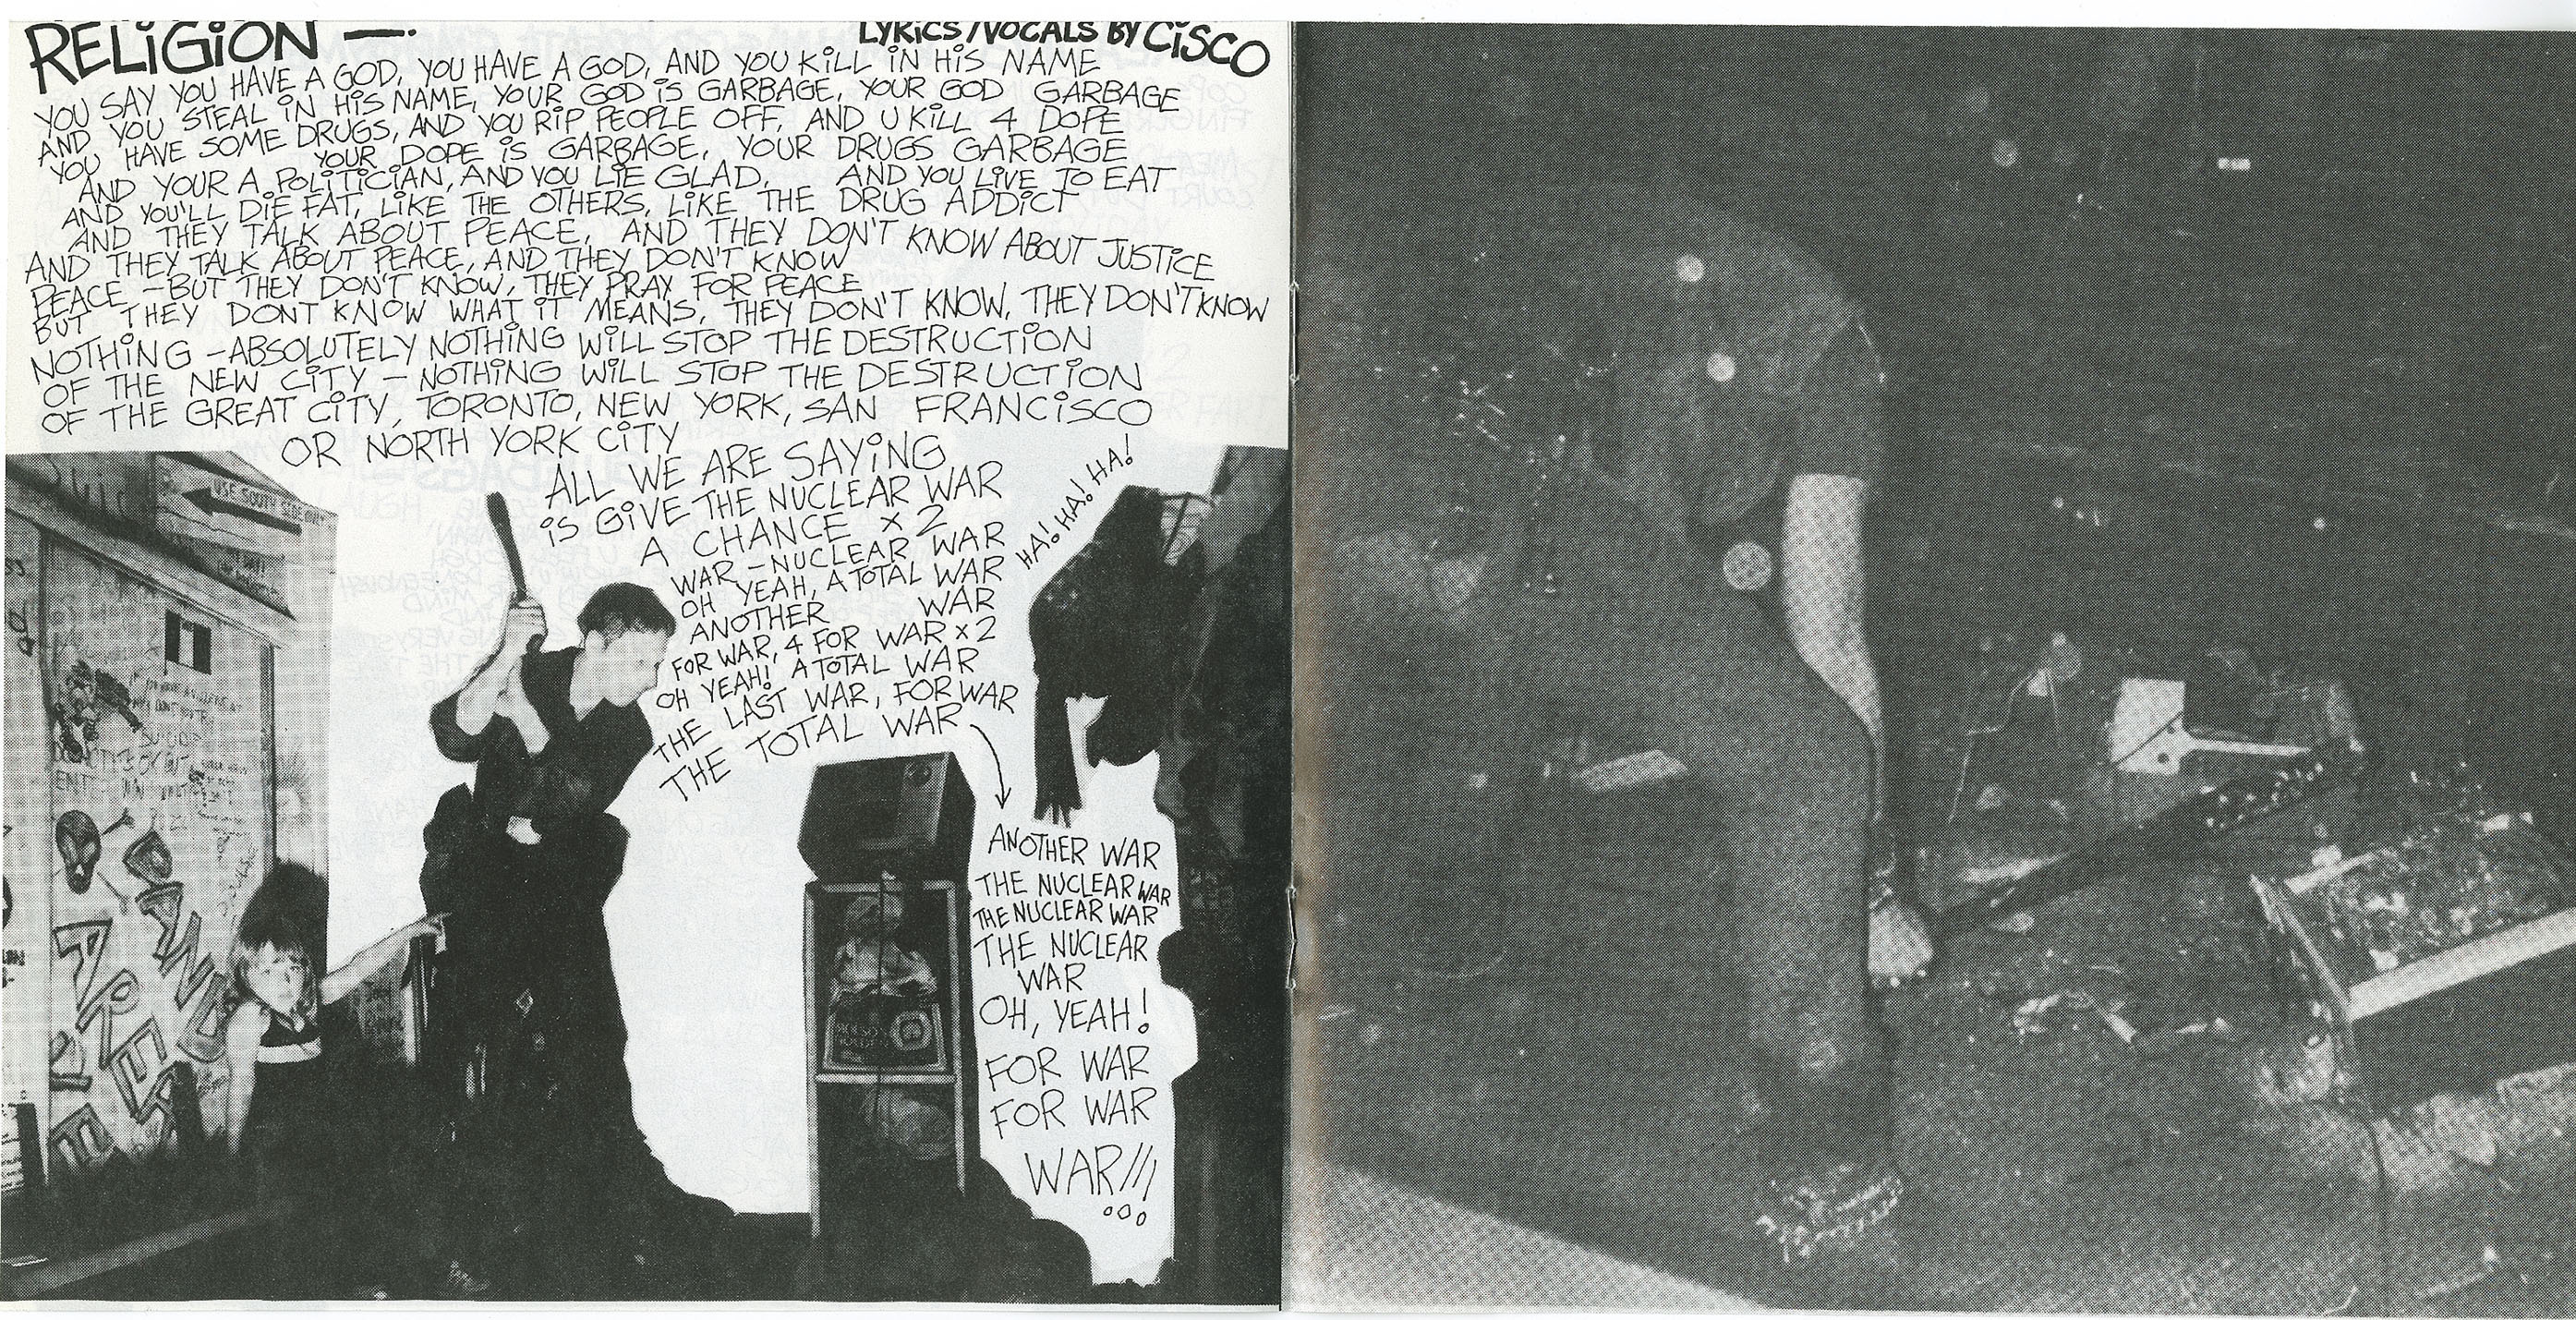 RELIGION —.
LYRICS/VOCALS BY CISCO
YOU SAY YOU HAVE A GOD, YOU HAVE A GOD, AND YOU KILL IN HIS NAME
AND YOU STEAL IN HIS NAME, YOUR GOD IS GARBAGE, YOUR GOD GARBAGE
YOU HAVE SOME DRUGS, AND YOU RIP PEOPLE OFF, AND U KILL 4 DOPE
YOUR DOPE IS GARBAGE, YOUR DRUGS GARBAGE
AND YOUR A POLITICIAN, AND YOU LIE GLAD, AND YOU LIVE TO EAT
AND YOU'LL DIE FAT, LIKE THE OTHERS, LIKE THE DRUG ADDICT
AND THEY TALK ABOUT PEACE, AND THEY DON'T KNOW ABOUT JUSTICE
AND THEY TALK ABOUT PEACE, AND THEY DON'T KNOW
PEACE – BUT THEY DON'T KNOW, THEY PRAY FOR PEACE
BUT THEY DONT KNOW WHAT IT MEANS, THEY DON'T KNOW, THEY DON'T KNOW
NOTHING – ABSOLUTELY NOTHING WILL STOP THE DESTRUCTION
OF THE NEW CITY – NOTHING WILL STOP THE DESTRUCTION
OF THE GREAT CITY, TORONTO, NEW YORK, SAN FRANCISCO
OR NORTH YORK CITY
ALL WE ARE SAYING
IS GIVE THE NUCLEAR WAR
A CHANCE x 2
WAR – NUCLEAR WAR
OH YEAH, A TOTAL WAR
ANOTHER WAR
FOR WAR, 4 FOR WAR x 2
OH YEAH! A TOTAL WAR
THE LAST WAR, FOR WAR
THE TOTAL WAR
HA! HA! HA! HA!
ANOTHER WAR
THE NUCLEAR WAR
THE NUCLEAR WAR
THE NUCLEAR
WAR
OH, YEAH!
FOR WAR
FOR WAR
WAR!!!
USE SOUTH SIDE ONLY